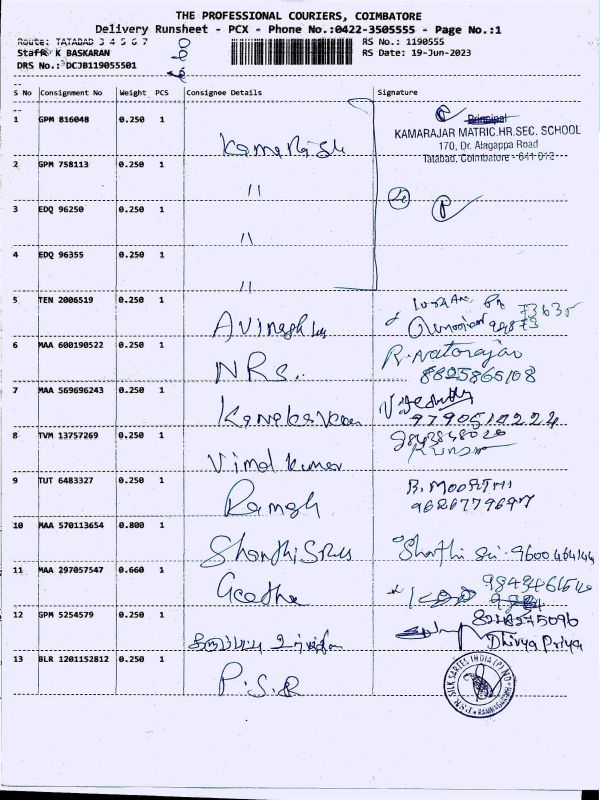 THE PROFESSIONAL COURIERS, COIMBATORE
Delivery Runsheet - PCX - Phone No.:0422-3505555 - Page No.:1
Route: TATABAD 3 4 5 6 7
RS No.: 1190555
Staff: K BASKARAN
RS Date: 19-Jun-2023
DRS No.: DCJB119055501
S No Consignment No Weight PCS Consignee Details Signature
1 GPM 816048 0.250 1
Principal
KAMARAJAR MATRIC.HR.SEC. SCHOOL
170, Dr. Alagappa Road
Tatabad, Coimbatore - 641 012
2 GPM 758113 0.250 1 "
3 EDQ 96250 0.250 1 "
4 EDQ 96355 0.250 1 "
5 TEN 2006519 0.250 1
6 MAA 600190522 0.250 1 NRS. R. Natarajan
8825865108
7 MAA 569696243 0.250 1
9790510224
8 TVM 13757269 0.250 1 Vimal kumar
9 TUT 6483327 0.250 1 Ramesh B. MOORTHI
9626779697
10 MAA 570113654 0.800 1 9600464144
11 MAA 297057547 0.660 1 Geetha
12 GPM 5254579 0.250 1
Dhivya Priya
13 BLR 1201152812 0.250 1 P.S.R
SILK SAREES INDIA (P)